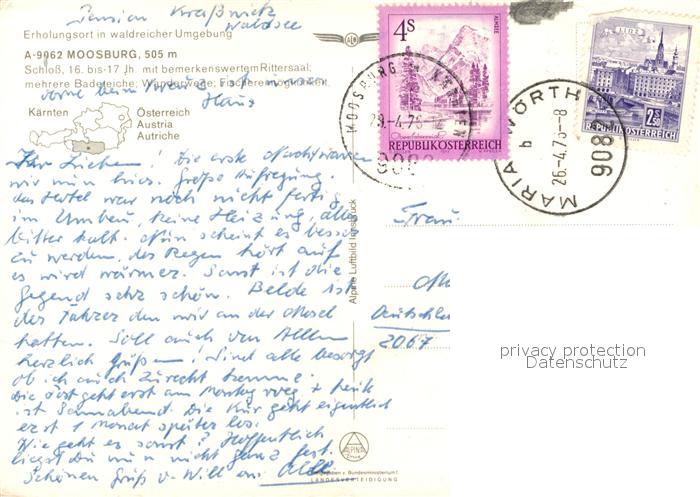 Pension Kraßnitz
Waldsee
Erholungsort in waldreicher Umgebung
A-9062 MOOSBURG, 505 m
Schloß, 16. bis 17 Jh. mit bemerkenswertem Rittersaal;
mehrere Badeteiche; Wanderwege; Fischereimöglichkeit.
vorne beim Kreuz ist unser
Haus
Kärnten
Österreich
Austria
Autriche
Ihr Lieben! Die erste Nacht waren
wir nun hier. Große Aufregung.
das Hotel war noch nicht fertig,
im Umbau, keine Heizung, alles
bitter kalt. Nun scheint es besser
zu werden, der Regen hört auf
es wird wärmer. Sonst ist die
Gegend sehr schön. Belde ist
der Fahrer den wir an der Mosel
hatten. Soll auch von Allen
herzlich Grüßen! Sind alle besorgt
ob ich auch zurecht komme.
Die Post geht erst am Montag weg + heute
ist Sonnabend. Die Kur geht eigentlich
erst 1 Monat später los.
Wie geht es sonst? Hoffentlich
liegst Du nun nicht ganz fest.
Schönen Gruß v. Will an Alle
Alpine Luftbild Innsbruck
4S
ALMSEE
Oberösterreich
REPUBLIK ÖSTERREICH
MOOSBURG IN KÄRNTEN
29.-4.76
9062
LINZ
2,50 S
REPUBLIK ÖSTERREICH
MARIA WÖRTH
26.-4.76-8
9082
Frau
Deutschl
2067
privacy protection
Datenschutz
ALPINE
freigegeben v. Bundesministerium f.
LANDESVERTEIDIGUNG